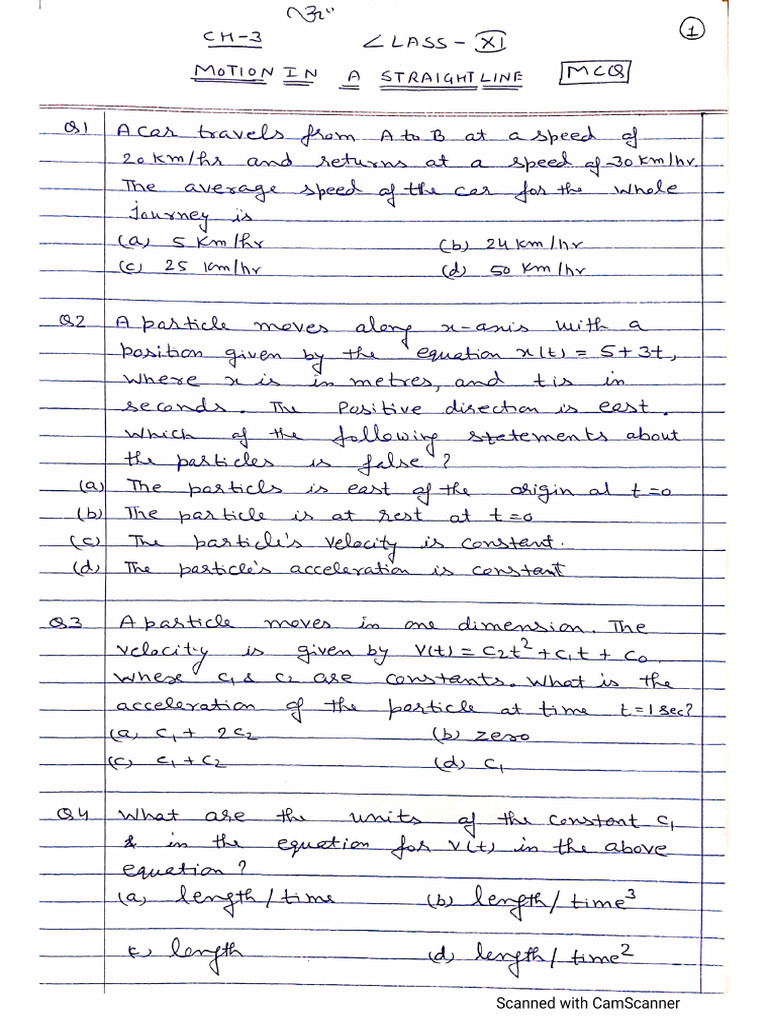 ①
CH-3 CLASS - XI
MOTION IN A STRAIGHT LINE MCQ
Q1 A car travels from A to B at a speed of
20 km/hr and returns at a speed of 30 km/hr.
The average speed of the car for the whole
journey is
(a) 5 km/hr (b) 24 km/hr
(c) 25 km/hr (d) 50 km/hr
Q2 A particle moves along x-axis with a
position given by the equation x(t) = 5+3t,
where x is in metres, and t is in
seconds. The Positive direction is east.
Which of the following statements about
the particles is false?
(a) The particls is east of the origin at t=0
(b) The particle is at rest at t=0
(c) The particle's velocity is constant.
(d) The particle's acceleration is constant
Q3 A particle moves in one dimension. The
velocity is given by V(t) = C₂t² + C₁t + C₀.
Where C₁ & C₂ are constants. What is the
acceleration of the particle at time t=1sec?
(a) C₁ + 2C₂ (b) zero
(c) C₁ + C₂ (d) C₁
Q4 What are the units of the constant C₁
& in the equation for V(t) in the above
equation?
(a) length/time (b) length/time³
(c) length (d) length/time²
Scanned with CamScanner